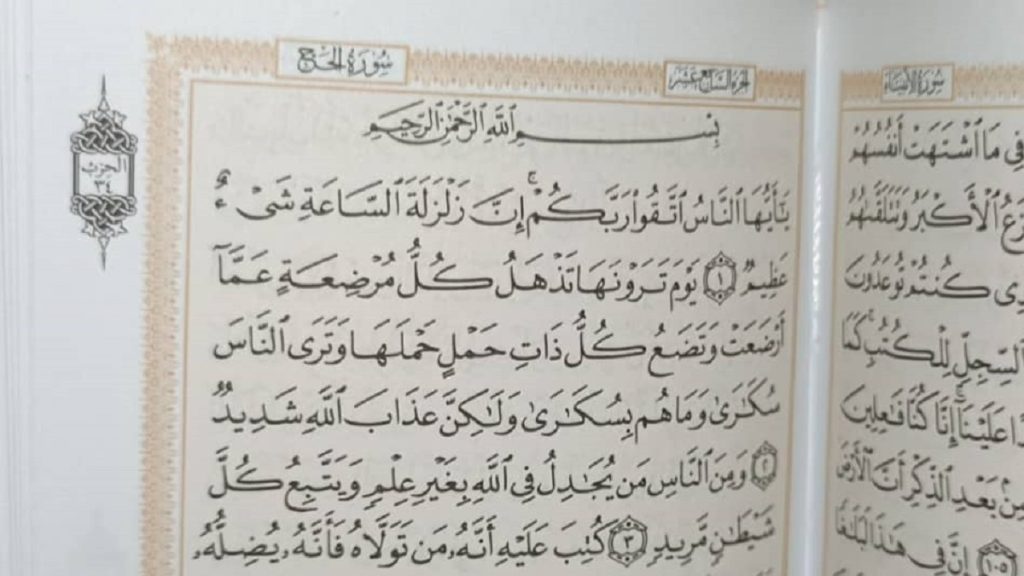 سُورَةُ الأَنبِيَاءِ
فِي مَا ٱشْتَهَتْ أَنفُسُهُمْ
ٱلْأَكْبَرُ وَتَتَلَقَّىٰهُمُ
كُنتُمْ تُوعَدُونَ
ٱلسِّجِلِّ لِلْكُتُبِ كَمَا
عَلَيْنَآ إِنَّا كُنَّا فَٰعِلِينَ
مِنۢ بَعْدِ ٱلذِّكْرِ أَنَّ ٱلْأَرْضَ
١٠٥ إِنَّ فِي هَٰذَا لَبَلَٰغًا
الجزء السابع عشر
سُورَةُ الحَجِّ
الحزب
٣٤
بِسْمِ ٱللَّهِ ٱلرَّحْمَٰنِ ٱلرَّحِيمِ
يَٰٓأَيُّهَا ٱلنَّاسُ ٱتَّقُوا۟ رَبَّكُمْ ۚ إِنَّ زَلْزَلَةَ ٱلسَّاعَةِ شَىْءٌ
عَظِيمٌ ١ يَوْمَ تَرَوْنَهَا تَذْهَلُ كُلُّ مُرْضِعَةٍ عَمَّآ
أَرْضَعَتْ وَتَضَعُ كُلُّ ذَاتِ حَمْلٍ حَمْلَهَا وَتَرَى ٱلنَّاسَ
سُكَٰرَىٰ وَمَا هُم بِسُكَٰرَىٰ وَلَٰكِنَّ عَذَابَ ٱللَّهِ شَدِيدٌ
٢ وَمِنَ ٱلنَّاسِ مَن يُجَٰدِلُ فِي ٱللَّهِ بِغَيْرِ عِلْمٍ وَيَتَّبِعُ كُلَّ
شَيْطَٰنٍ مَّرِيدٍ ٣ كُتِبَ عَلَيْهِ أَنَّهُۥ مَن تَوَلَّاهُ فَأَنَّهُۥ يُضِلُّهُۥ